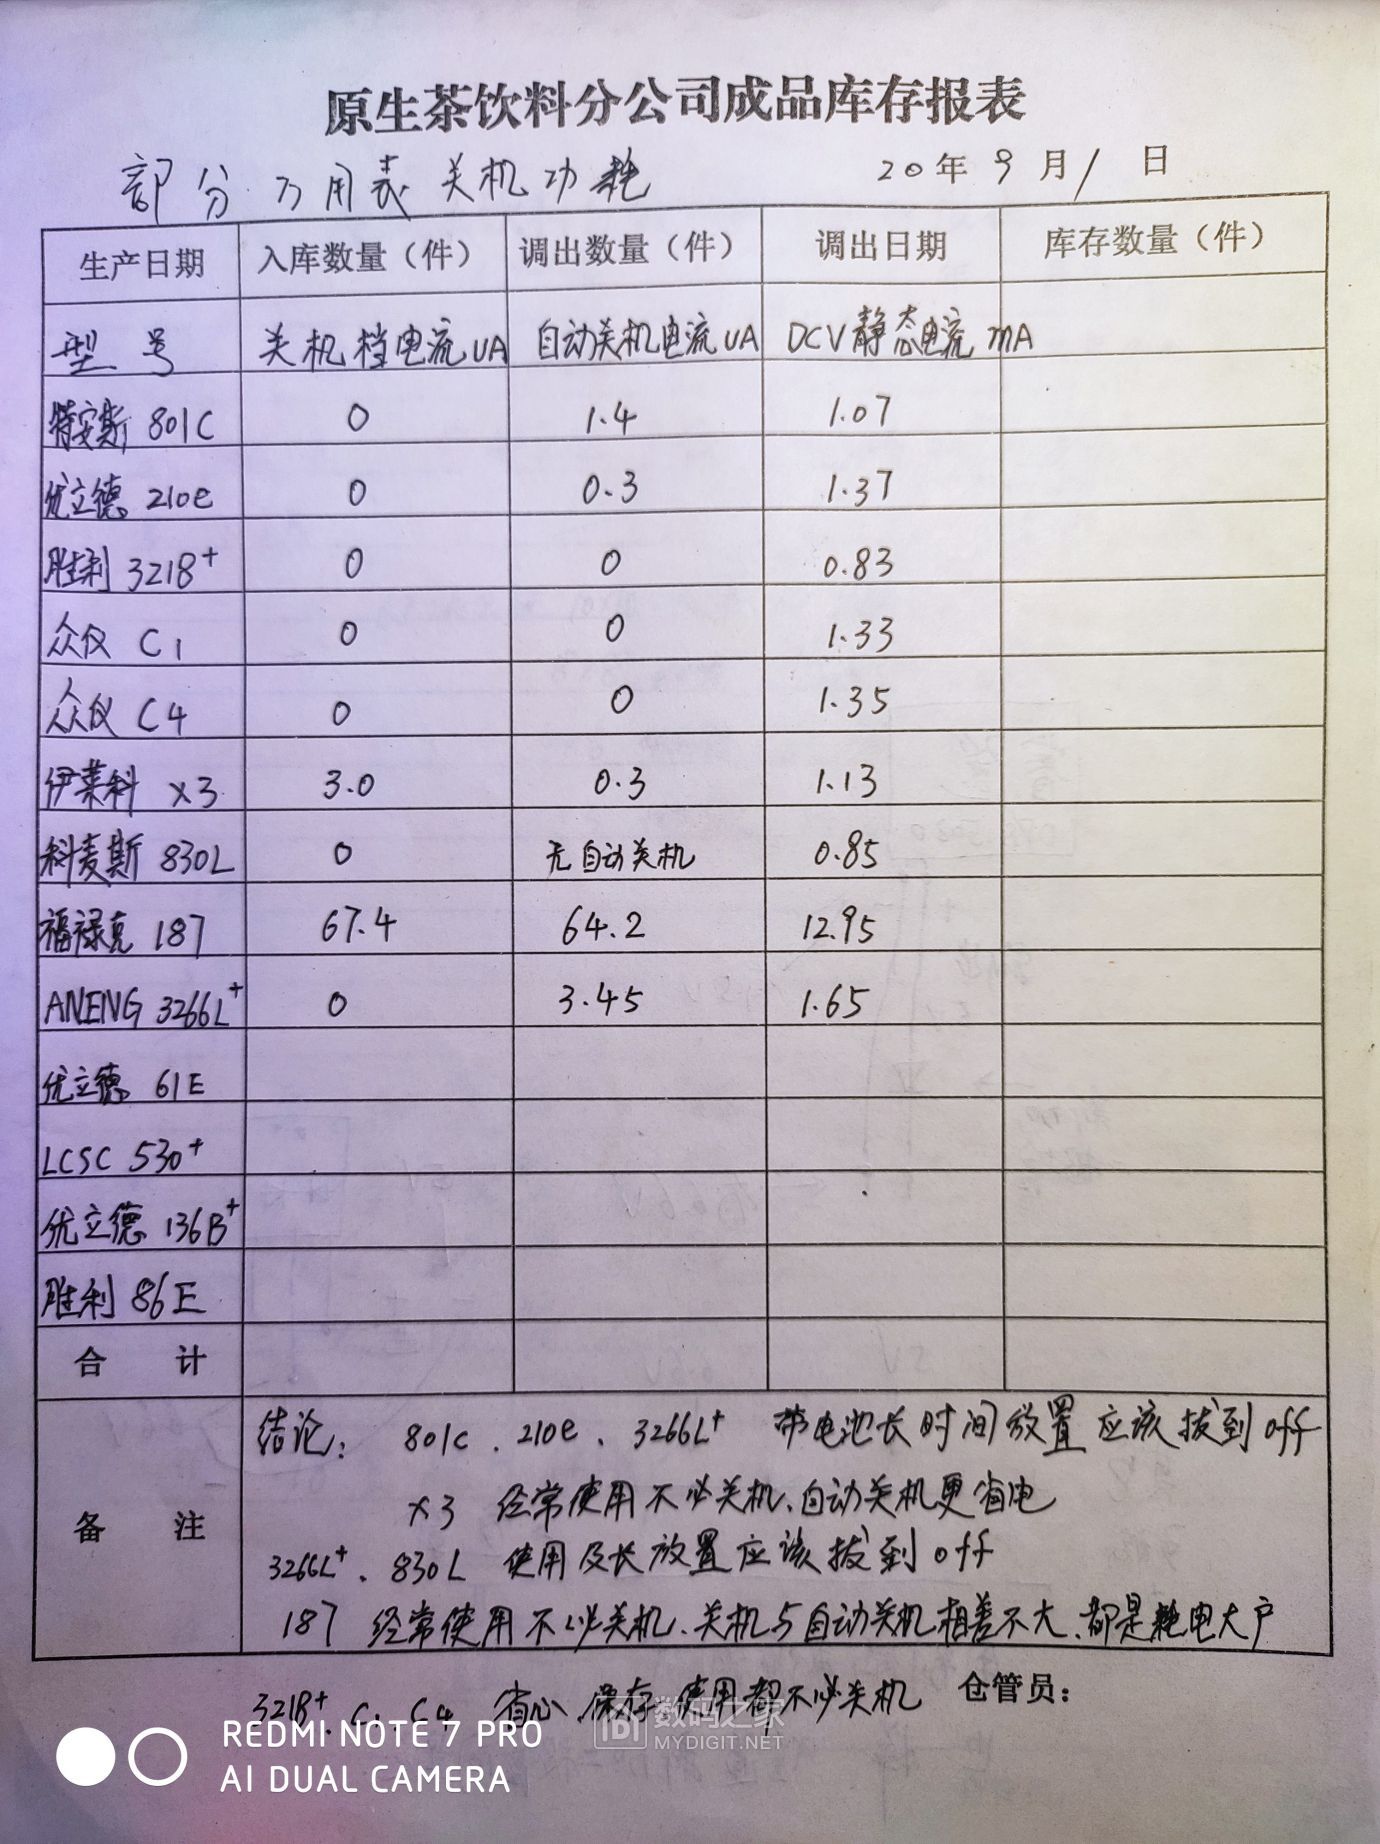 原生茶饮料分公司成品库存报表
部分万用表关机功耗 20年9月1日
生产日期 入库数量（件） 调出数量（件） 调出日期 库存数量（件）
型号 关机档电流UA 自动关机电流UA DCV静态电流mA
特安斯 801C 0 1.4 1.07
优立德 210e 0 0.3 1.37
胜利 3218+ 0 0 0.83
众仪 C1 0 0 1.33
众仪 C4 0 0 1.35
伊莱科 X3 3.0 0.3 1.13
科麦斯 830L 0 无自动关机 0.85
福禄克 187 67.4 64.2 12.95
ANENG 3266L+ 0 3.45 1.65
优立德 61E
LCSC 530+
优立德 136B+
胜利 86E
合计
备注
结论： 801c、210e、3266L+ 带电池长时间放置应该拔到off
X3 经常使用不必关机、自动关机更省电
3266L+、830L 使用及长放置应该拔到off
187 经常使用不必关机、关机与自动关机相差不大、都是耗电大户
3218+、C1、C4 省心、保存、使用都不必关机 仓管员：
数码之家
MYDIGIT.NET
REDMI NOTE 7 PRO
AI DUAL CAMERA